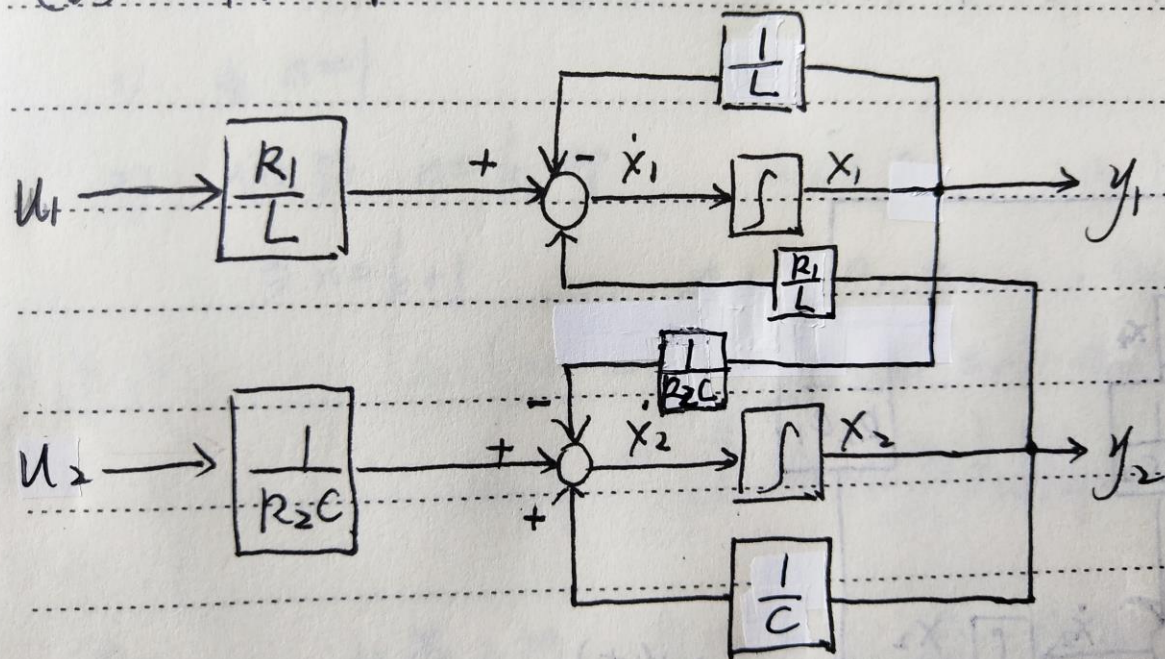 1/L
u₁ R₁/L + - ẋ₁ ∫ x₁ y₁
R₁/L
1/R₂C
u₂ 1/R₂C - + + ẋ₂ ∫ x₂ y₂
1/C